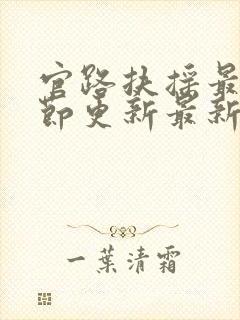 官路扶摇最
节更新最新
一葉清霜